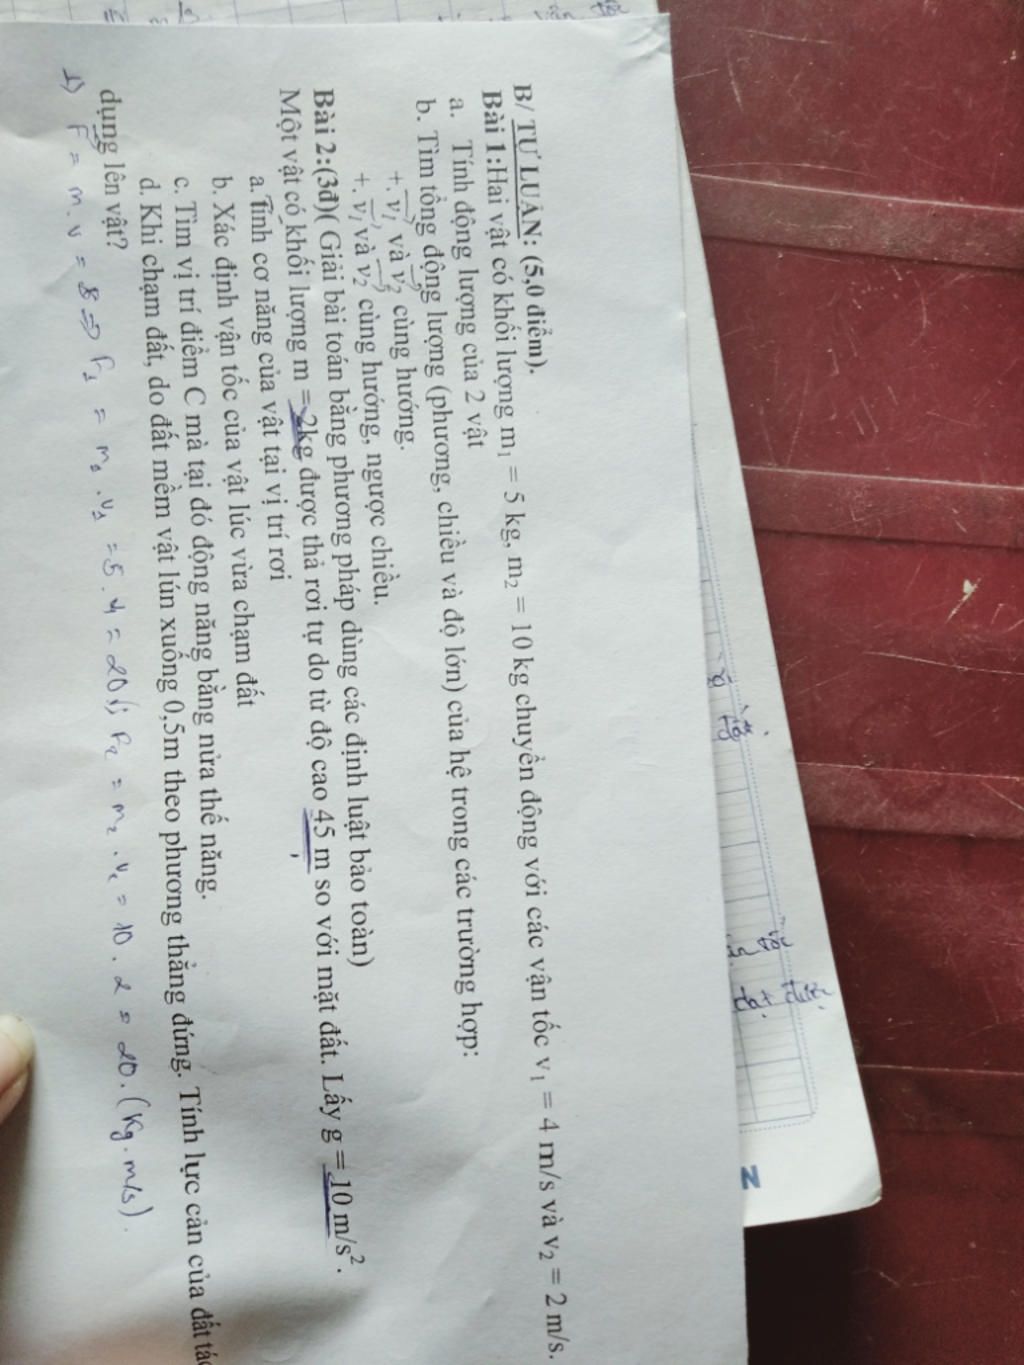 B/ TỰ LUẬN: (5,0 điểm).
Bài 1:Hai vật có khối lượng m₁ = 5 kg, m₂ = 10 kg chuyển động với các vận tốc v₁ = 4 m/s và v₂ = 2 m/s.
a. Tính động lượng của 2 vật
b. Tìm tổng động lượng (phương, chiều và độ lớn) của hệ trong các trường hợp:
+. v₁ và v₂ cùng hướng.
+. v₁ và v₂ cùng hướng, ngược chiều.
Bài 2:(3đ)( Giải bài toán bằng phương pháp dùng các định luật bảo toàn)
Một vật có khối lượng m = 2kg được thả rơi tự do từ độ cao 45 m so với mặt đất. Lấy g = 10 m/s².
a. Tính cơ năng của vật tại vị trí rơi
b. Xác định vận tốc của vật lúc vừa chạm đất
c. Tìm vị trí điểm C mà tại đó động năng bằng nửa thế năng.
d. Khi chạm đất, do đất mềm vật lún xuống 0,5m theo phương thẳng đứng. Tính lực cản của đất tác
dụng lên vật?
1) = m . v = => P₁ = m₁ . v₁ = 5 . 4 = 20 ; P₂ = m₂ . v₂ = 10 . 2 = 20 . (Kg . m/s) .
tốc
đạt được
N